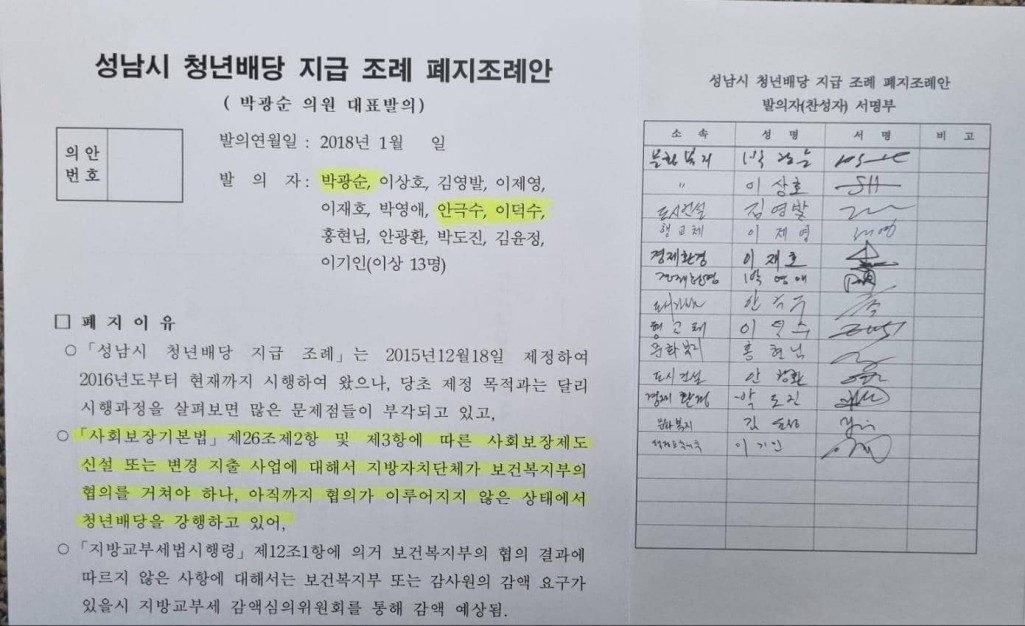 성남시 청년배당 지급 조례 폐지조례안
( 박광순 의원 대표발의)
의안
번호
발의연월일 : 2018년 1월 일
발 의 자 : 박광순, 이상호, 김영발, 이제영,
이재호, 박영애, 안극수, 이덕수,
홍현님, 안광환, 박도진, 김윤정,
이기인(이상 13명)
□ 폐지이유
○ 「성남시 청년배당 지급 조례」는 2015년12월18일 제정하여
2016년도부터 현재까지 시행하여 왔으나, 당초 제정 목적과는 달리
시행과정을 살펴보면 많은 문제점들이 부각되고 있고,
○ 「사회보장기본법」제26조제2항 및 제3항에 따른 사회보장제도
신설 또는 변경 지출 사업에 대해서 지방자치단체가 보건복지부의
협의를 거쳐야 하나, 아직까지 협의가 이루어지지 않은 상태에서
청년배당을 강행하고 있어,
○ 「지방교부세법시행령」제12조1항에 의거 보건복지부의 협의 결과에
따르지 않은 사항에 대해서는 보건복지부 또는 감사원의 감액 요구가
있을시 지방교부세 감액심의위원회를 통해 감액 예상됨.
성남시 청년배당 지급 조례 폐지조례안
발의자(찬성자) 서명부
소 속 성 명 서 명 비 고
문화복지 박광순
〃 이상호 SH
도시건설 김영발
행교체 이제영
경제환경 이재호
경제환경 박영애
도시건설 안극수
행교체 이덕수
문화복지 홍현님
도시건설 안광환
경제환경 박도진
문화복지 김윤정
이기인